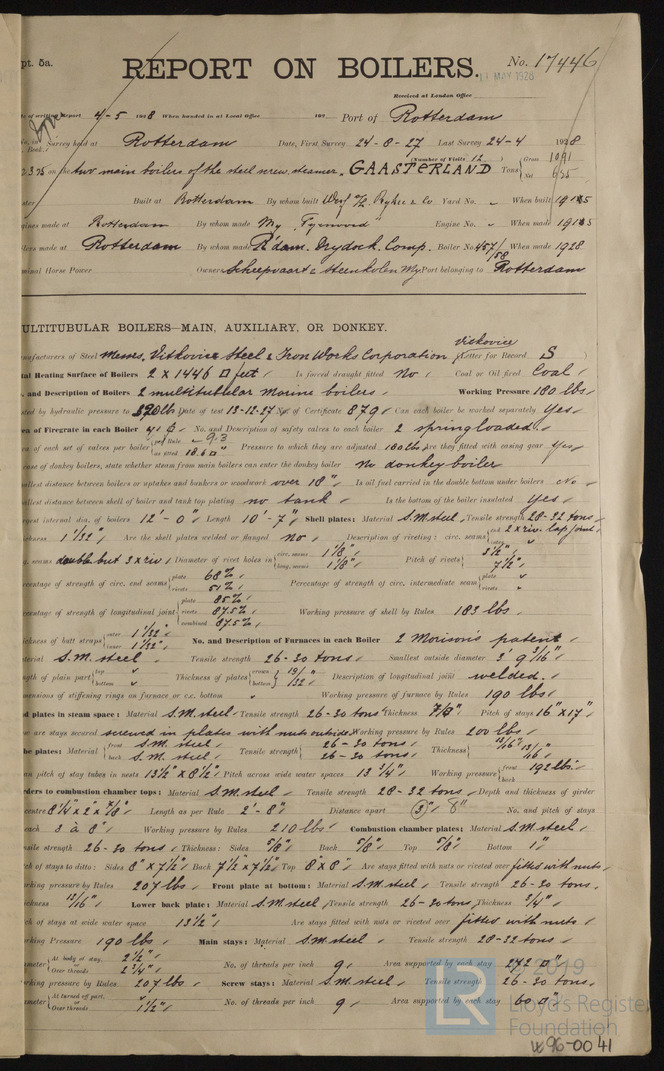 pt. 5a.
REPORT ON BOILERS.
No. 17446
11 MAY 1928
Received at London Office
of writing Report 4-5 1928 When handed in at Local Office 192 Port of Rotterdam
Survey held at Rotterdam Date, First Survey 24-8-27 Last Survey 24-4 1928
on the two main boilers of the steel screw steamer "GAASTERLAND" (Number of Visits 12) Tons Gross 1091 Net 655
Built at Rotterdam By whom built Werf v/h Rykee & Co. Yard No. When built 1915
Engines made at Rotterdam By whom made My. "Fyenoord" Engine No. When made 1915
made at Rotterdam By whom made R'dam. Drydock. Comp. Boiler No. 457/58 When made 1928
minal Horse Power Owners Scheepvaart & Steenkolen My Port belonging to Rotterdam
ULTITUBULAR BOILERS—MAIN, AUXILIARY, OR DONKEY.
nufacturers of Steel Messrs. Vitkovice Steel & Iron Works Corporation, Vitkovice (Letter for Record S)
tal Heating Surface of Boilers 2 x 1446 □ feet Is forced draught fitted No Coal or Oil fired Coal
and Description of Boilers 2 multitubular Marine boilers Working Pressure 180 lbs
ted by hydraulic pressure to 320 lb Date of test 13-12-27 No. of Certificate 879 Can each boiler be worked separately Yes
of Firegrate in each Boiler 41 ▢ No. and Description of safety valves to each boiler 2 springloaded
of each set of valves per boiler per Rule 9.3 as fitted 18.6 □" Pressure to which they are adjusted 180 lbs Are they fitted with easing gear Yes
case of donkey boilers, state whether steam from main boilers can enter the donkey boiler No donkey boiler
allest distance between boilers or uptakes and bunkers or woodwork over 18" Is oil fuel carried in the double bottom under boilers No
allest distance between shell of boiler and tank top plating no tank Is the bottom of the boiler insulated Yes
rgest internal dia. of boilers 12'-0" Length 10'-7" Shell plates: Material S.M. steel Tensile strength 28-32 tons
ickness 1 1/32" Are the shell plates welded or flanged No Description of riveting: circ. seams end 2 x riv. lap joint
seams double butt 3 x riv Diameter of rivet holes in circ. seams 1 1/8" long. seams 1 1/8" Pitch of rivets 3 1/2" 7 1/2"
rcentage of strength of circ. end seams plate 68% rivets 51% Percentage of strength of circ. intermediate seam plate rivets
rcentage of strength of longitudinal joint plate 85% rivets 87.5% combined 87.5% Working pressure of shell by Rules 183 lbs
ickness of butt straps outer 1 1/32" inner 1 1/32" No. and Description of Furnaces in each Boiler 2 Morison's patent
terial S.M. steel Tensile strength 26-30 tons Smallest outside diameter 3' 9 3/16"
gth of plain part top bottom Thickness of plates crown bottom 19/32" Description of longitudinal joint welded
mensions of stiffening rings on furnace or c.c. bottom Working pressure of furnace by Rules 190 lbs
d plates in steam space: Material S.M. steel Tensile strength 26-30 tons Thickness 7/8" Pitch of stays 16" x 17"
are stays secured screwed in plates with nuts outside Working pressure by Rules 200 lbs
be plates: Material front S.M. steel back S.M. steel Tensile strength 26-30 tons 26-30 tons Thickness 13/16" 13/16"
an pitch of stay tubes in nests 13 1/2" x 8 1/2" Pitch across wide water spaces 13 3/4" Working pressure front 192 lbs back
rders to combustion chamber tops: Material S.M. steel Tensile strength 28-32 tons Depth and thickness of girder
centre 8 1/4" x 2" x 7/8" Length as per Rule 2'-8" Distance apart 8" No. and pitch of stays
each 3 à 8" Working pressure by Rules 210 lbs Combustion chamber plates: Material S.M. steel
nsile strength 26-30 tons Thickness: Sides 5/8" Back 5/8" Top 5/8" Bottom 1"
ch of stays to ditto: Sides 8" x 7 1/2" Back 7 1/2" x 7 1/2" Top 8" x 8" Are stays fitted with nuts or riveted over fitted with nuts
rking pressure by Rules 207 lbs Front plate at bottom: Material S.M. steel Tensile strength 26-30 tons
ickness 13/16" Lower back plate: Material S.M. steel Tensile strength 26-30 tons Thickness 3/4"
ch of stays at wide water space 13 1/2" Are stays fitted with nuts or riveted over fitted with nuts
rking Pressure 190 lbs Main stays: Material S.M. steel Tensile strength 28-32 tons
ameter At body of stay, 2 1/2" Over threads 2 3/4" No. of threads per inch 9 Area supported by each stay 272 □"
rking pressure by Rules 207 lbs Screw stays: Material S.M. steel Tensile strength 26-30 tons
ameter At turned off part, Over threads 1 1/2" No. of threads per inch 9 Area supported by each stay 60 □"
© 2019
Lloyd's Register
Foundation
W96-0041